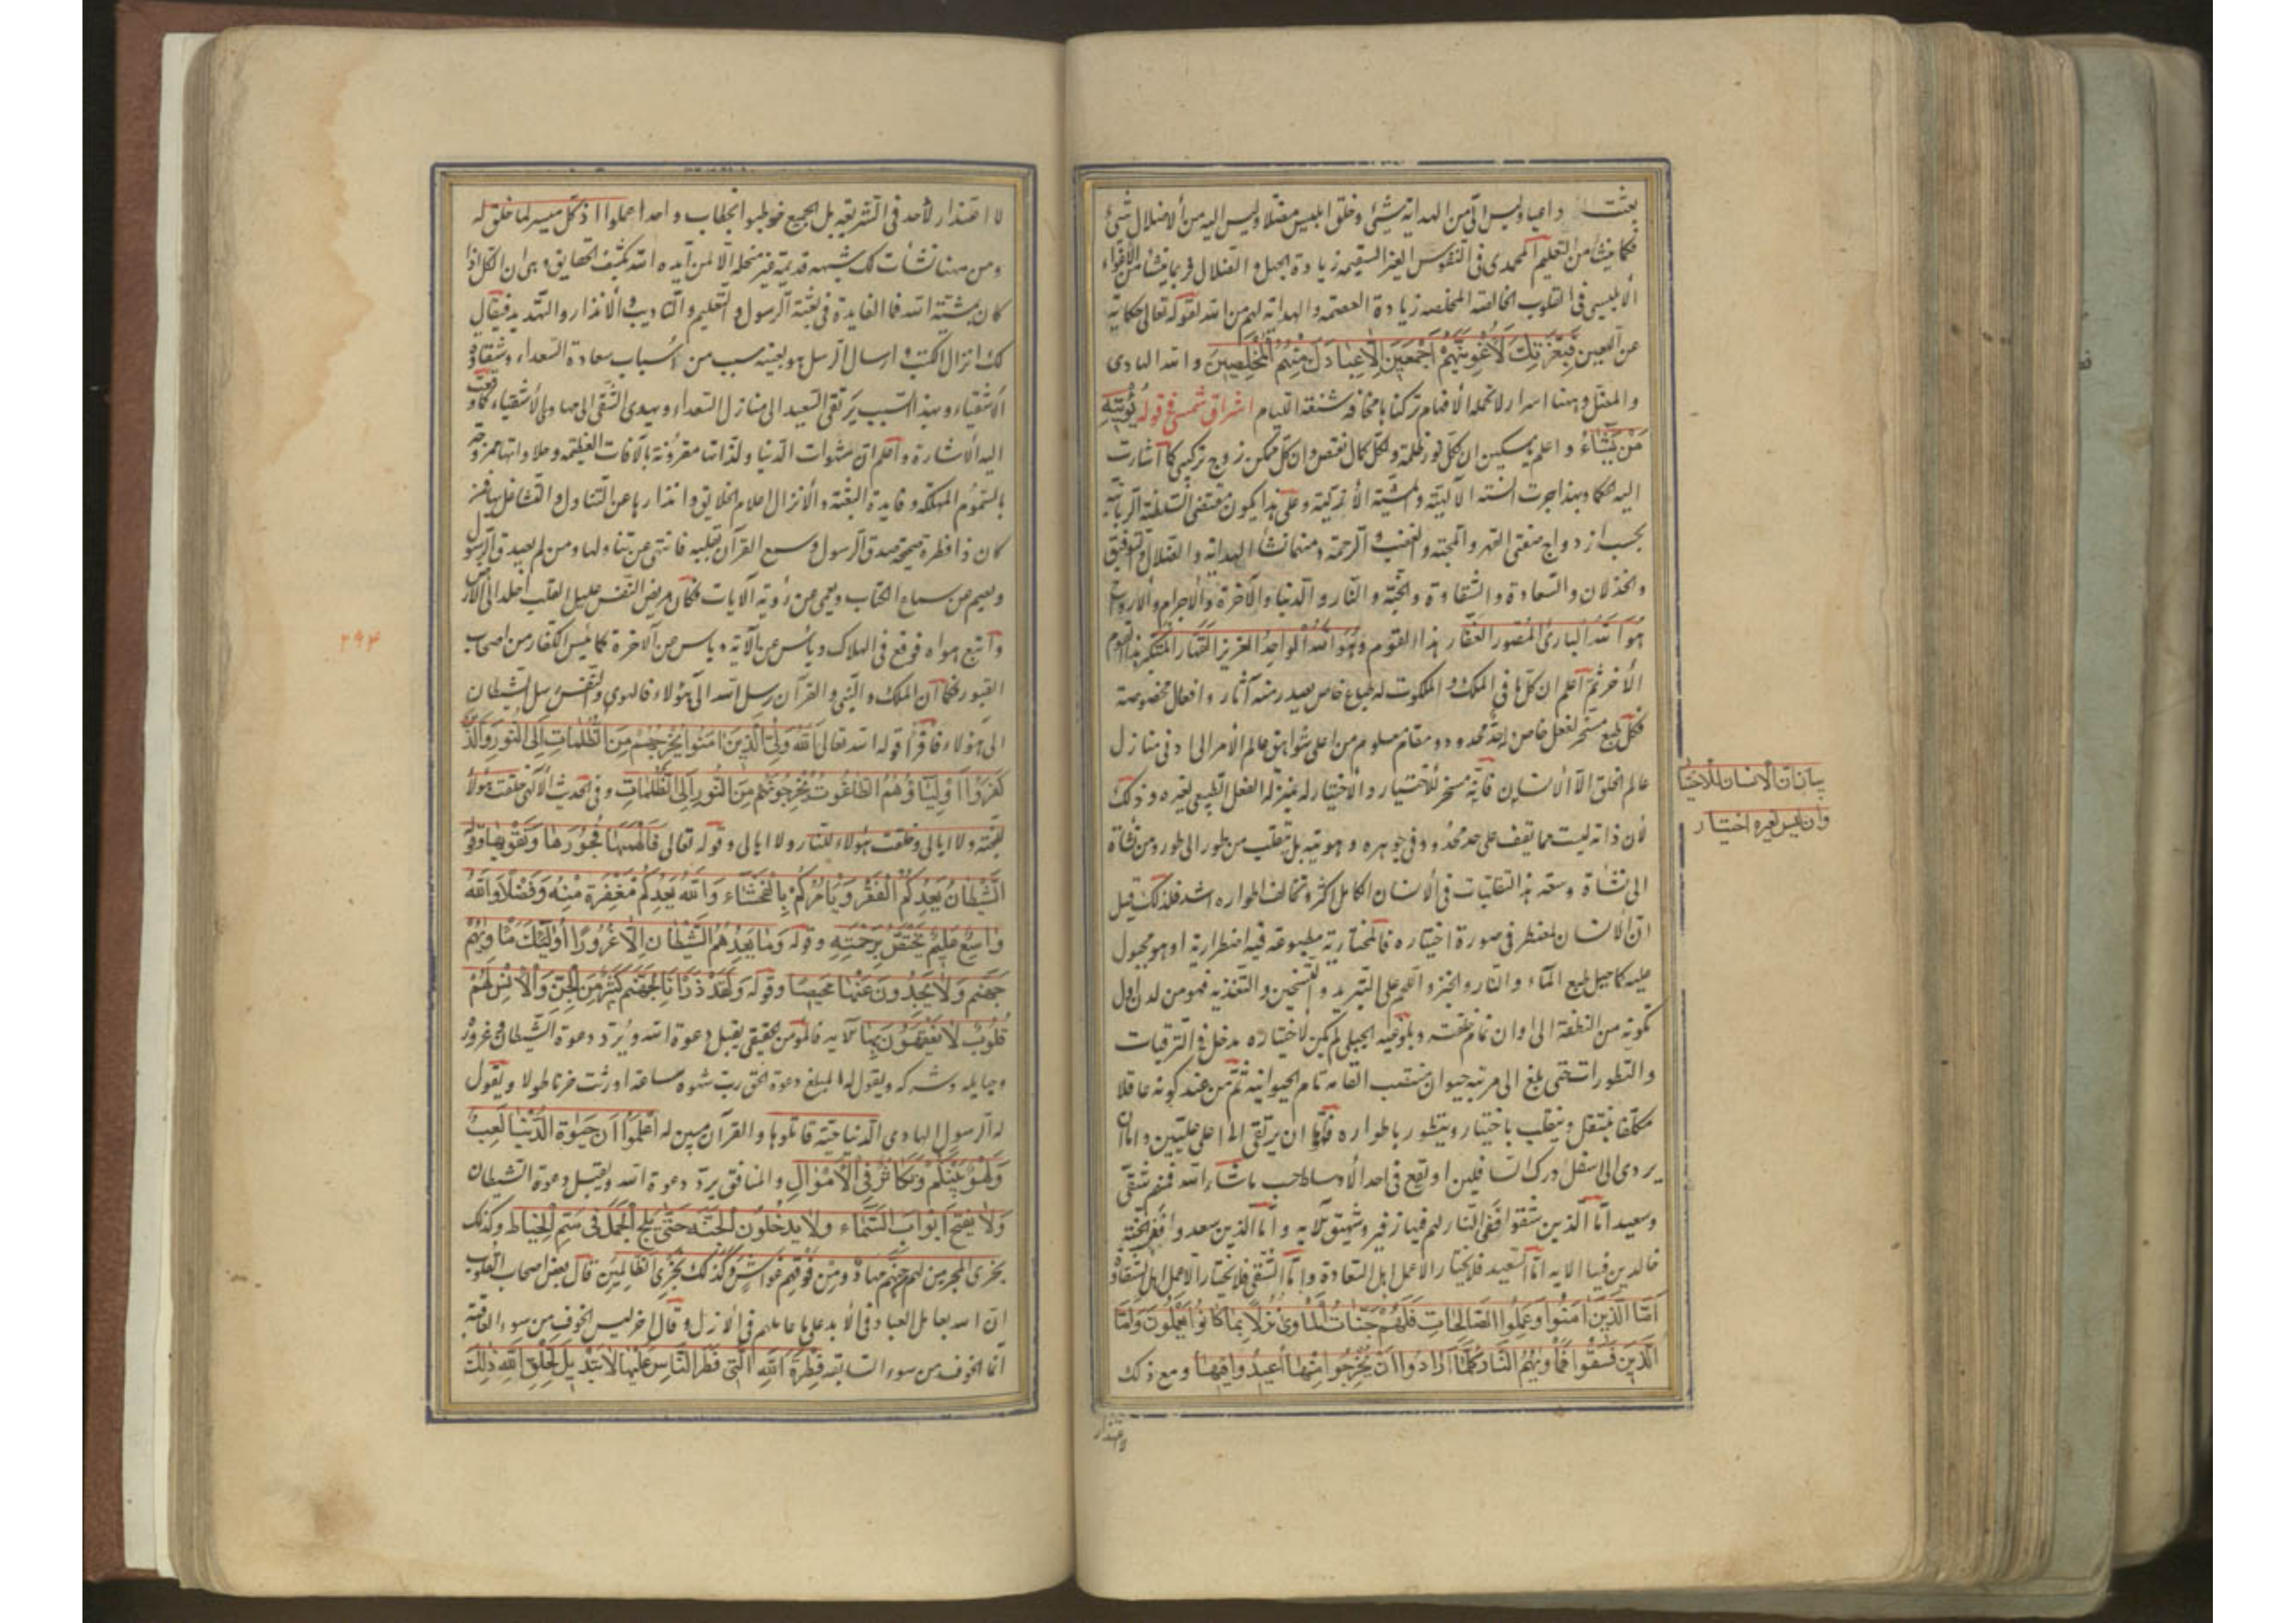 بعثت داعيا وليس الى من الهداية شيئ وخلق ابليس مضلا وليس اليه من الاضلال شئ
فكما ينشأ من التعليم المحمدى فى النفوس الغير السقيمة زيادة الجهل و الضلال فربما ينشأ من الاغواء
الابليسى فى القلوب الخالصة المخلصة زيادة العصمة والهداية لهم من الله لقوله تعالى حكاية
عن اللعين فَبِعِزَّتِكَ لَأُغْوِيَنَّهُمْ أَجْمَعِينَ إِلَّا عِبَادَكَ مِنْهُمُ الْمُخْلَصِينَ والله الهادى
والمضل وههنا اسرار لا تحمله الافهام تركناها مخافة شنعة اللئام اشراق شمسى فى قوله يُؤْتِيهِ
مَنْ يَشَاءُ واعلم يا مسكين ان لكل نور ظلمة ولكل كمال نقص وان كل ممكن زوج تركيبى كما اشارت
اليه الحكما وبهذا جرت السنة الالهية والمشية الازلية وعلى هذا يكون مقتضى السلطنة الربانية
بحسب ازدواج صفتى القهر والمحبة والغضب والرحمة ومنهما نشأ الهداية والضلال والتوفيق
والخذلان والسعادة والشقاوة والجنة والنار والدنيا والآخرة والاجرام والارواح
هو الله البارئ المصور الغفار لهذا القوم وهو الله الواحد العزيز القهار المتكبر لهذا القوم
الأخر ثم اعلم ان كل ما فى الملك و الملكوت له طباع خاص يصدر منه آثار وافعال مخصوصة
فكل طبع مسخر لفعل خاص له حد محدود ومقام معلوم من اعلى شواهق عالم الامر الى ادنى منازل
عالم الخلق الا الانسان فانه مسخر للاختيار والاختيار له بمنزلة الفعل الطبيعى لغيره وذلك
لان ذاته ليست مما يقف على حد محدود فى جوهره وهويته بل يتقلب من طور الى طور ومن نشأة
الى نشاة وسعة هذا التقلبات فى الانسان الكامل اكثر وتخالف اطواره اشد فلذلك قيل
ان الانسان لمضطر فى صورة اختياره فالمختارية مطبوعة فيه اضطرارية او هو مجبول
عليه كما جبل طبع الماء والنار والخبز واللحم على التبريد والتسخين والتغذية فهو من لدن اول
تكونه من النطفة الى اوان تمام خلقته وبلوغه الجبلى لم يكن لاختياره مدخل فى الترقيات
والتطورات حتى بلغ الى مرتبة حيوان منتصب القامة تام الحيوانية ثم من عند كونه عاقلا
مكلفا ينتقل ويتقلب باختياره ويتطور باطواره فاما ان يرتقى الى اعلى عليين واما ان
يردى الى اسفل درك السافلين او يقع فى احد الاوساط حسب ما شاء الله فمنهم شقى
وسعيد اما الذين شقوا ففى النار لهم فيها زفير وشهيق الآيه واما الذين سعدوا ففى الجنة
خالدين فيها الايه اما السعيد فلا يختار الا عمل اهل السعادة واما الشقى فلا يختار الا عمل اهل الشقاوة
اَمَّا الَّذِينَ اٰمَنُوا وَعَمِلُوا الصَّالِحَاتِ فَلَهُمْ جَنَّاتُ الْمَأْوىٰ نُزُلًا بِمَا كَانُوا يَعْمَلُونَ وَاَمَّا
الَّذِينَ فَسَقُوا فَمَأْوٰيهُمُ النَّارُ كُلَّمَا اَرَادُوا اَنْ يَخْرُجُوا مِنْهَا اُعِيدُوا فِيهَا ومع ذلك
لا اعتذار
بيان ان الانسان للاختيار
وان ليس لغيره اختيار
لا اعتذار لأحد فى الشريعة بل الجميع خوطبوا بخطاب واحد اعملوا اذ كل ميسر لما خلق له
ومن ههنا نشأت لك شبهة قديمة غير منحلة الا لمن ايده الله بكشف الحقايق وهى ان الكل اذا
كان بمشية الله فما الفايدة فى بعثة الرسول و التعليم والتاديب والانذار والتهديد فيقال
لك انزال الكتب وارسال الرسل هو بعينه سبب من اسباب سعادة السعداء وشقاوة
الاشقياء وبهذا السبب يرتقى السعيد الى منازل السعداء ويهدى الشقى الى مهاوى الاشقياء كما وقعت
اليه الاشارة واعلم ان شهوات الدنيا ولذاتها مقرونة بالآفات العظيمة وحلاوتها ممزوجة
بالسموم المهلكة وفايدة البعثة والانزال اعلام الخلايق وانذارها عن التناول والتشاغل بها فمن
كان ذا فطرة صحيحة صدق الرسول وسمع القرآن بقلبه فانتهى عن تناولها ومن لم يصدق الرسول
ويصم عن سماع الكتاب ويعمى عن رؤية الآيات فكان مريض النفس عليل القلب اخلد الى الارض
واتبع هواه فوقع فى الهلاك ويائس عن الآية ويأس عن الآخرة كما يئس الكفار من اصحاب
القبور فكما ان الملك والنبى والقرآن رسل الله الى هؤلاء فالهوى والنفس رسل الشيطان
الى هؤلاء فاقرأ قوله تعالى اَللّٰهُ وَلِيُّ الَّذِينَ اٰمَنُوا يُخْرِجُهُمْ مِنَ الظُّلُمَاتِ اِلَى النُّورِ وَالَّذِينَ
كَفَرُوا اَوْلِيَاؤُهُمُ الطَّاغُوتُ يُخْرِجُونَهُمْ مِنَ النُّورِ اِلَى الظُّلُمَاتِ وفى الحديث الالهى خلقت هؤلاء
للجنة ولا ابالى وخلقت هؤلاء للنار ولا ابالى وقوله تعالى فَاَلْهَمَهَا فُجُورَهَا وَتَقْوٰيهَا وقوله
اَلشَّيْطَانُ يَعِدُكُمُ الْفَقْرَ وَيَأْمُرُكُمْ بِالْفَحْشَاءِ وَاللّٰهُ يَعِدُكُمْ مَغْفِرَةً مِنْهُ وَفَضْلًا وَاللّٰهُ
وَاسِعٌ عَلِيمٌ يَخْتَصُّ بِرَحْمَتِهِ وقوله وَمَا يَعِدُهُمُ الشَّيْطَانُ اِلَّا غُرُورًا اُولٰئِكَ مَأْوٰيهُمْ
جَهَنَّمُ وَلَا يَجِدُونَ عَنْهَا مَحِيصًا وقوله وَلَقَدْ ذَرَأْنَا لِجَهَنَّمَ كَثِيرًا مِنَ الْجِنِّ وَالْاِنْسِ لَهُمْ
قُلُوبٌ لَا يَفْقَهُونَ بِهَا الآيه فالمؤمن الحقيقى يقبل دعوة الله ويرد دعوة الشيطان وغروره
وحبايله وشركه ويقول له المبلغ دعوة الحق رب شهوة ساعة اورثت حزنا طويلا ويقول
له الرسول الهادى الدنيا حية قاتلوها والقرآن مبين له اِعْلَمُوا اَنَّ حَيٰوةَ الدُّنْيَا لَعِبٌ
وَلَهْوٌ بَيْنَكُمْ وَتَكَاثُرٌ فِى الْاَمْوَالِ والمنافق يرد دعوة الله ويقبل دعوة الشيطان
وَلَا يفتح اَبْوَابَ السَّمَاءِ وَلَا يَدْخُلُونَ الْجَنَّةَ حَتّٰى يَلِجَ الْجَمَلُ فِى سَمِّ الْخِيَاطِ وكذلك
يجزى المجرمين لهم جهنم مهاد ومن فوقهم غواش وكذلك نجزى الظالمين قال بعض اصحاب القلوب
ان الله يعامل العباد فى الأبد على ما عاملهم فى الأزل وقال اخر ليس الخوف من سوء العاقبة
انما الخوف من سوء السابقة فِطْرَةَ اللّٰهِ الَّتِى فَطَرَ النَّاسَ عَلَيْهَا لَا تَبْدِيلَ لِخَلْقِ اللّٰهِ ذٰلِكَ
۲۹۴